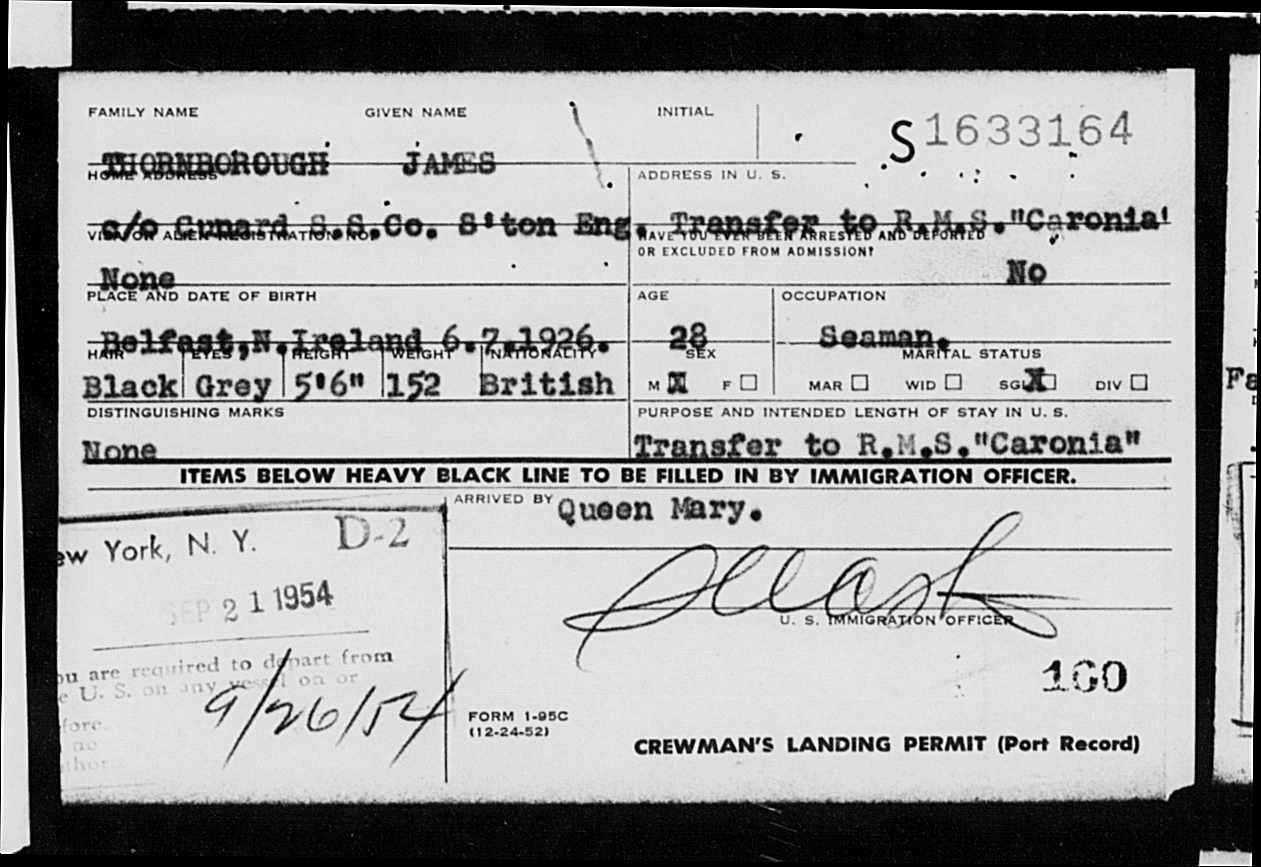 FAMILY NAME GIVEN NAME INITIAL
S1633164
THORNBOROUGH JAMES
HOME ADDRESS ADDRESS IN U. S.
c/o Cunard S.S.Co. S'ton Eng. Transfer to R.M.S."Caronia'
VISA OR ALIEN REGISTRATION NO. HAVE YOU EVER BEEN ARRESTED AND DEPORTED
OR EXCLUDED FROM ADMISSION?
None No
PLACE AND DATE OF BIRTH AGE OCCUPATION
Belfast,N.Ireland 6.7.1926. 28 Seaman.
HAIR EYES HEIGHT WEIGHT NATIONALITY SEX MARITAL STATUS
Black Grey 5'6" 152 British M X F MAR WID SGL X DIV
DISTINGUISHING MARKS PURPOSE AND INTENDED LENGTH OF STAY IN U. S.
None Transfer to R.M.S."Caronia"
ITEMS BELOW HEAVY BLACK LINE TO BE FILLED IN BY IMMIGRATION OFFICER.
ARRIVED BY Queen Mary.
ew York, N. Y. D-2
SEP 21 1954
U. S. IMMIGRATION OFFICER
ou are required to depart from
e U. S. on any vessel on or
fore
9/26/54
no
thor
160
FORM I-95C
(12-24-52)
CREWMAN'S LANDING PERMIT (Port Record)
Fa